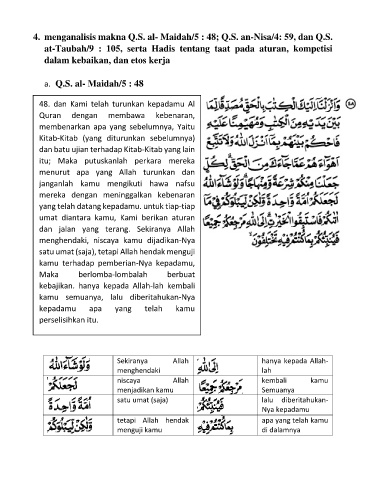 4. menganalisis makna Q.S. al- Maidah/5 : 48; Q.S. an-Nisa/4: 59, dan Q.S.
at-Taubah/9 : 105, serta Hadis tentang taat pada aturan, kompetisi
dalam kebaikan, dan etos kerja
a. Q.S. al- Maidah/5 : 48
48. dan Kami telah turunkan kepadamu Al
Quran dengan membawa kebenaran,
membenarkan apa yang sebelumnya, Yaitu
Kitab-Kitab (yang diturunkan sebelumnya)
dan batu ujian terhadap Kitab-Kitab yang lain
itu; Maka putuskanlah perkara mereka
menurut apa yang Allah turunkan dan
janganlah kamu mengikuti hawa nafsu
mereka dengan meninggalkan kebenaran
yang telah datang kepadamu. untuk tiap-tiap
umat diantara kamu, Kami berikan aturan
dan jalan yang terang. Sekiranya Allah
menghendaki, niscaya kamu dijadikan-Nya
satu umat (saja), tetapi Allah hendak menguji
kamu terhadap pemberian-Nya kepadamu,
Maka berlomba-lombalah berbuat
kebajikan. hanya kepada Allah-lah kembali
kamu semuanya, lalu diberitahukan-Nya
kepadamu apa yang telah kamu
perselisihkan itu.
وَأَنْزَلْنَا إِلَيْكَ الْكِتٰبَ بِالْحَقِّ مُصَدِّقًا لِمَا
بَيْنَ يَدَيْهِ مِنَ الْكِتٰبِ وَمُهَيْمِنًا عَلَيْهِ
فَاحْكُمْ بَيْنَهُمْ بِمَا أَنْزَلَ اللّٰهُ وَلَا تَتَّبِعْ
أَهْوَاءَهُمْ عَمَّا جَاءَكَ مِنَ الْحَقِّ لِكُلٍّ
جَعَلْنَا مِنْكُمْ شِرْعَةً وَمِنْهَاجًا وَلَوْ شَاءَ اللّٰهُ
لَجَعَلَكُمْ أُمَّةً وَاحِدَةً وَلٰكِنْ لِيَبْلُوَكُمْ فِي مَا
آتٰكُمْ فَاسْتَبِقُوا الْخَيْرٰتِ إِلَى اللّٰهِ مَرْجِعُكُمْ جَمِيعًا
فَيُنَبِّئُكُمْ بِمَا كُنْتُمْ فِيهِ تَخْتَلِفُونَ
وَلَوْ شَاءَ اللّٰهُ Sekiranya Allah
menghendaki
إِلَى اللّٰهِ hanya kepada Allah-
lah
لَجَعَلَكُمْ niscaya Allah
menjadikan kamu
مَرْجِعُكُمْ جَمِيعًا kembali kamu
Semuanya
أُمَّةً وَاحِدَةً satu umat (saja)
فَيُنَبِّئُكُمْ lalu diberitahukan-
Nya kepadamu
وَلٰكِنْ لِيَبْلُوَكُمْ tetapi Allah hendak
menguji kamu
بِمَا كُنْتُمْ فِيهِ apa yang telah kamu
di dalamnya